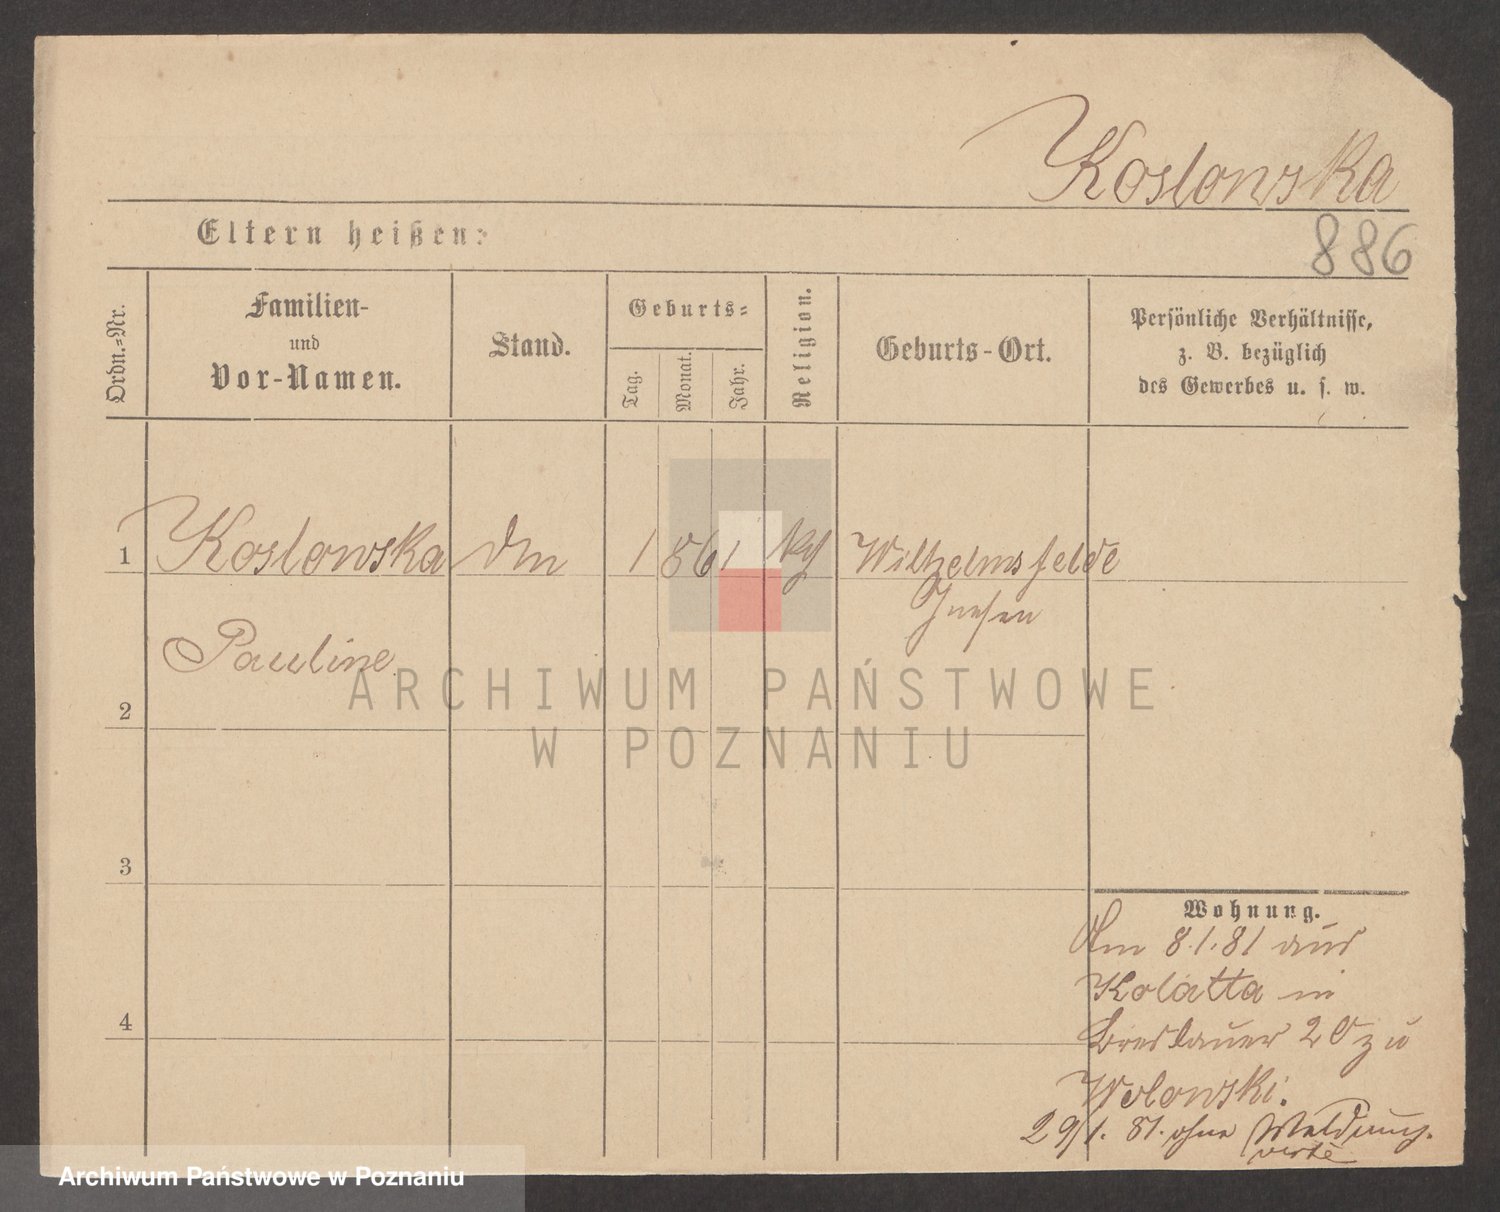 Koslowska
Eltern heißen:
886
Ordn.-Nr.
Familien-
und
Vor-Namen.
Stand.
Geburts-
Tag.
Monat.
Jahr.
Religion.
Geburts-Ort.
Persönliche Verhältnisse,
z. B. bezüglich
des Gewerbes u. s. w.
1 Koslowska 1861 Wilhelmsfelde
Gnesen
Pauline
2
3
4
Wohnung.
Am 8.1.81 aus
Kolatta in
Breslauer 20 zu
Wolowski.
29/1. 81. ohne Meldung
ARCHIWUM PAŃSTWOWE
W POZNANIU
Archiwum Państwowe w Poznaniu